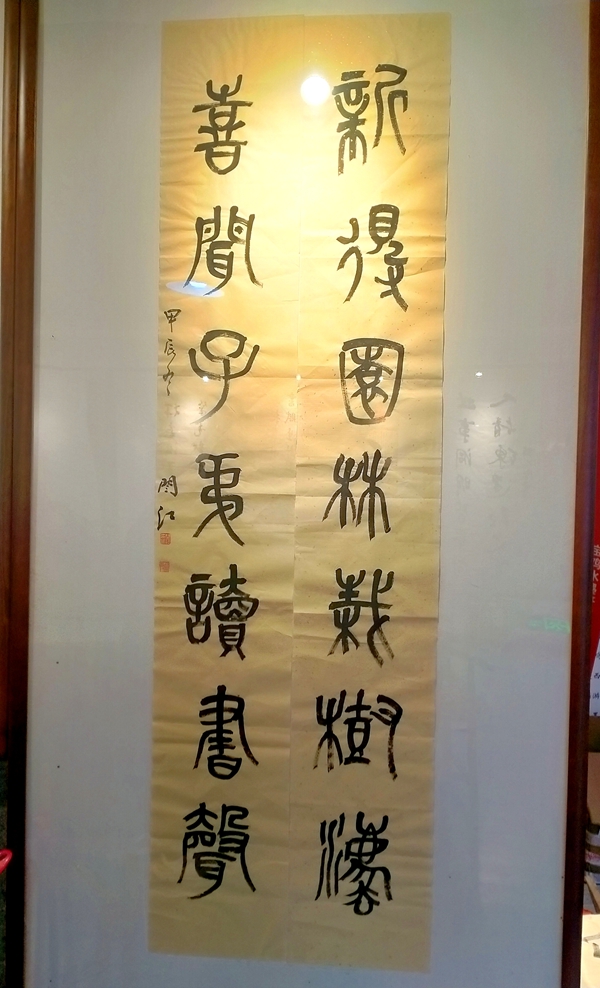 新得園林栽樹灋
喜聞子弟讀書聲
甲辰冬